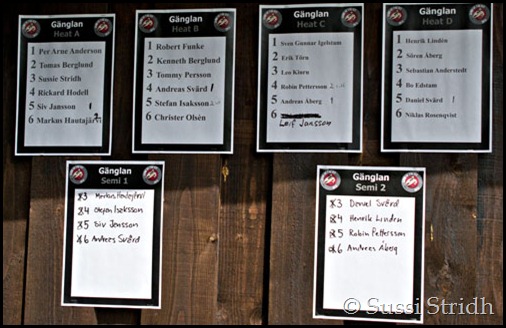 Gänglan
Heat A
1 Per Arne Anderson
2 Tomas Berglund
3 Sussie Stridh
4 Rickard Hodell
5 Siv Jansson 1
6 Markus Hautajärvi 2
Gänglan
Heat B
1 Robert Funke
2 Kenneth Berglund
3 Tommy Persson
4 Andreas Svärd 1
5 Stefan Isaksson 2
6 Christer Olsén
Gänglan
Heat C
1 Sven Gunnar Igelstam
2 Erik Törn
3 Leo Kiurn
4 Robin Pettersson 2
5 Andreas Åberg 1
6
Leif Jansson
Gänglan
Heat D
1 Henrik Lindén
2 Sören Åberg
3 Sebastian Anderstedt
4 Bo Edstam
5 Daniel Svärd 1
6 Niklas Rosenqvist
Gänglan
Semi 1
3 Markus
4 Isaksson
5 Siv Jansson
6 Andreas Svärd
Gänglan
Semi 2
3 Daniel Svärd
4 Henrik Linden
5 Robin Pettersson
6 Andreas Åberg
© Sussi Stridh